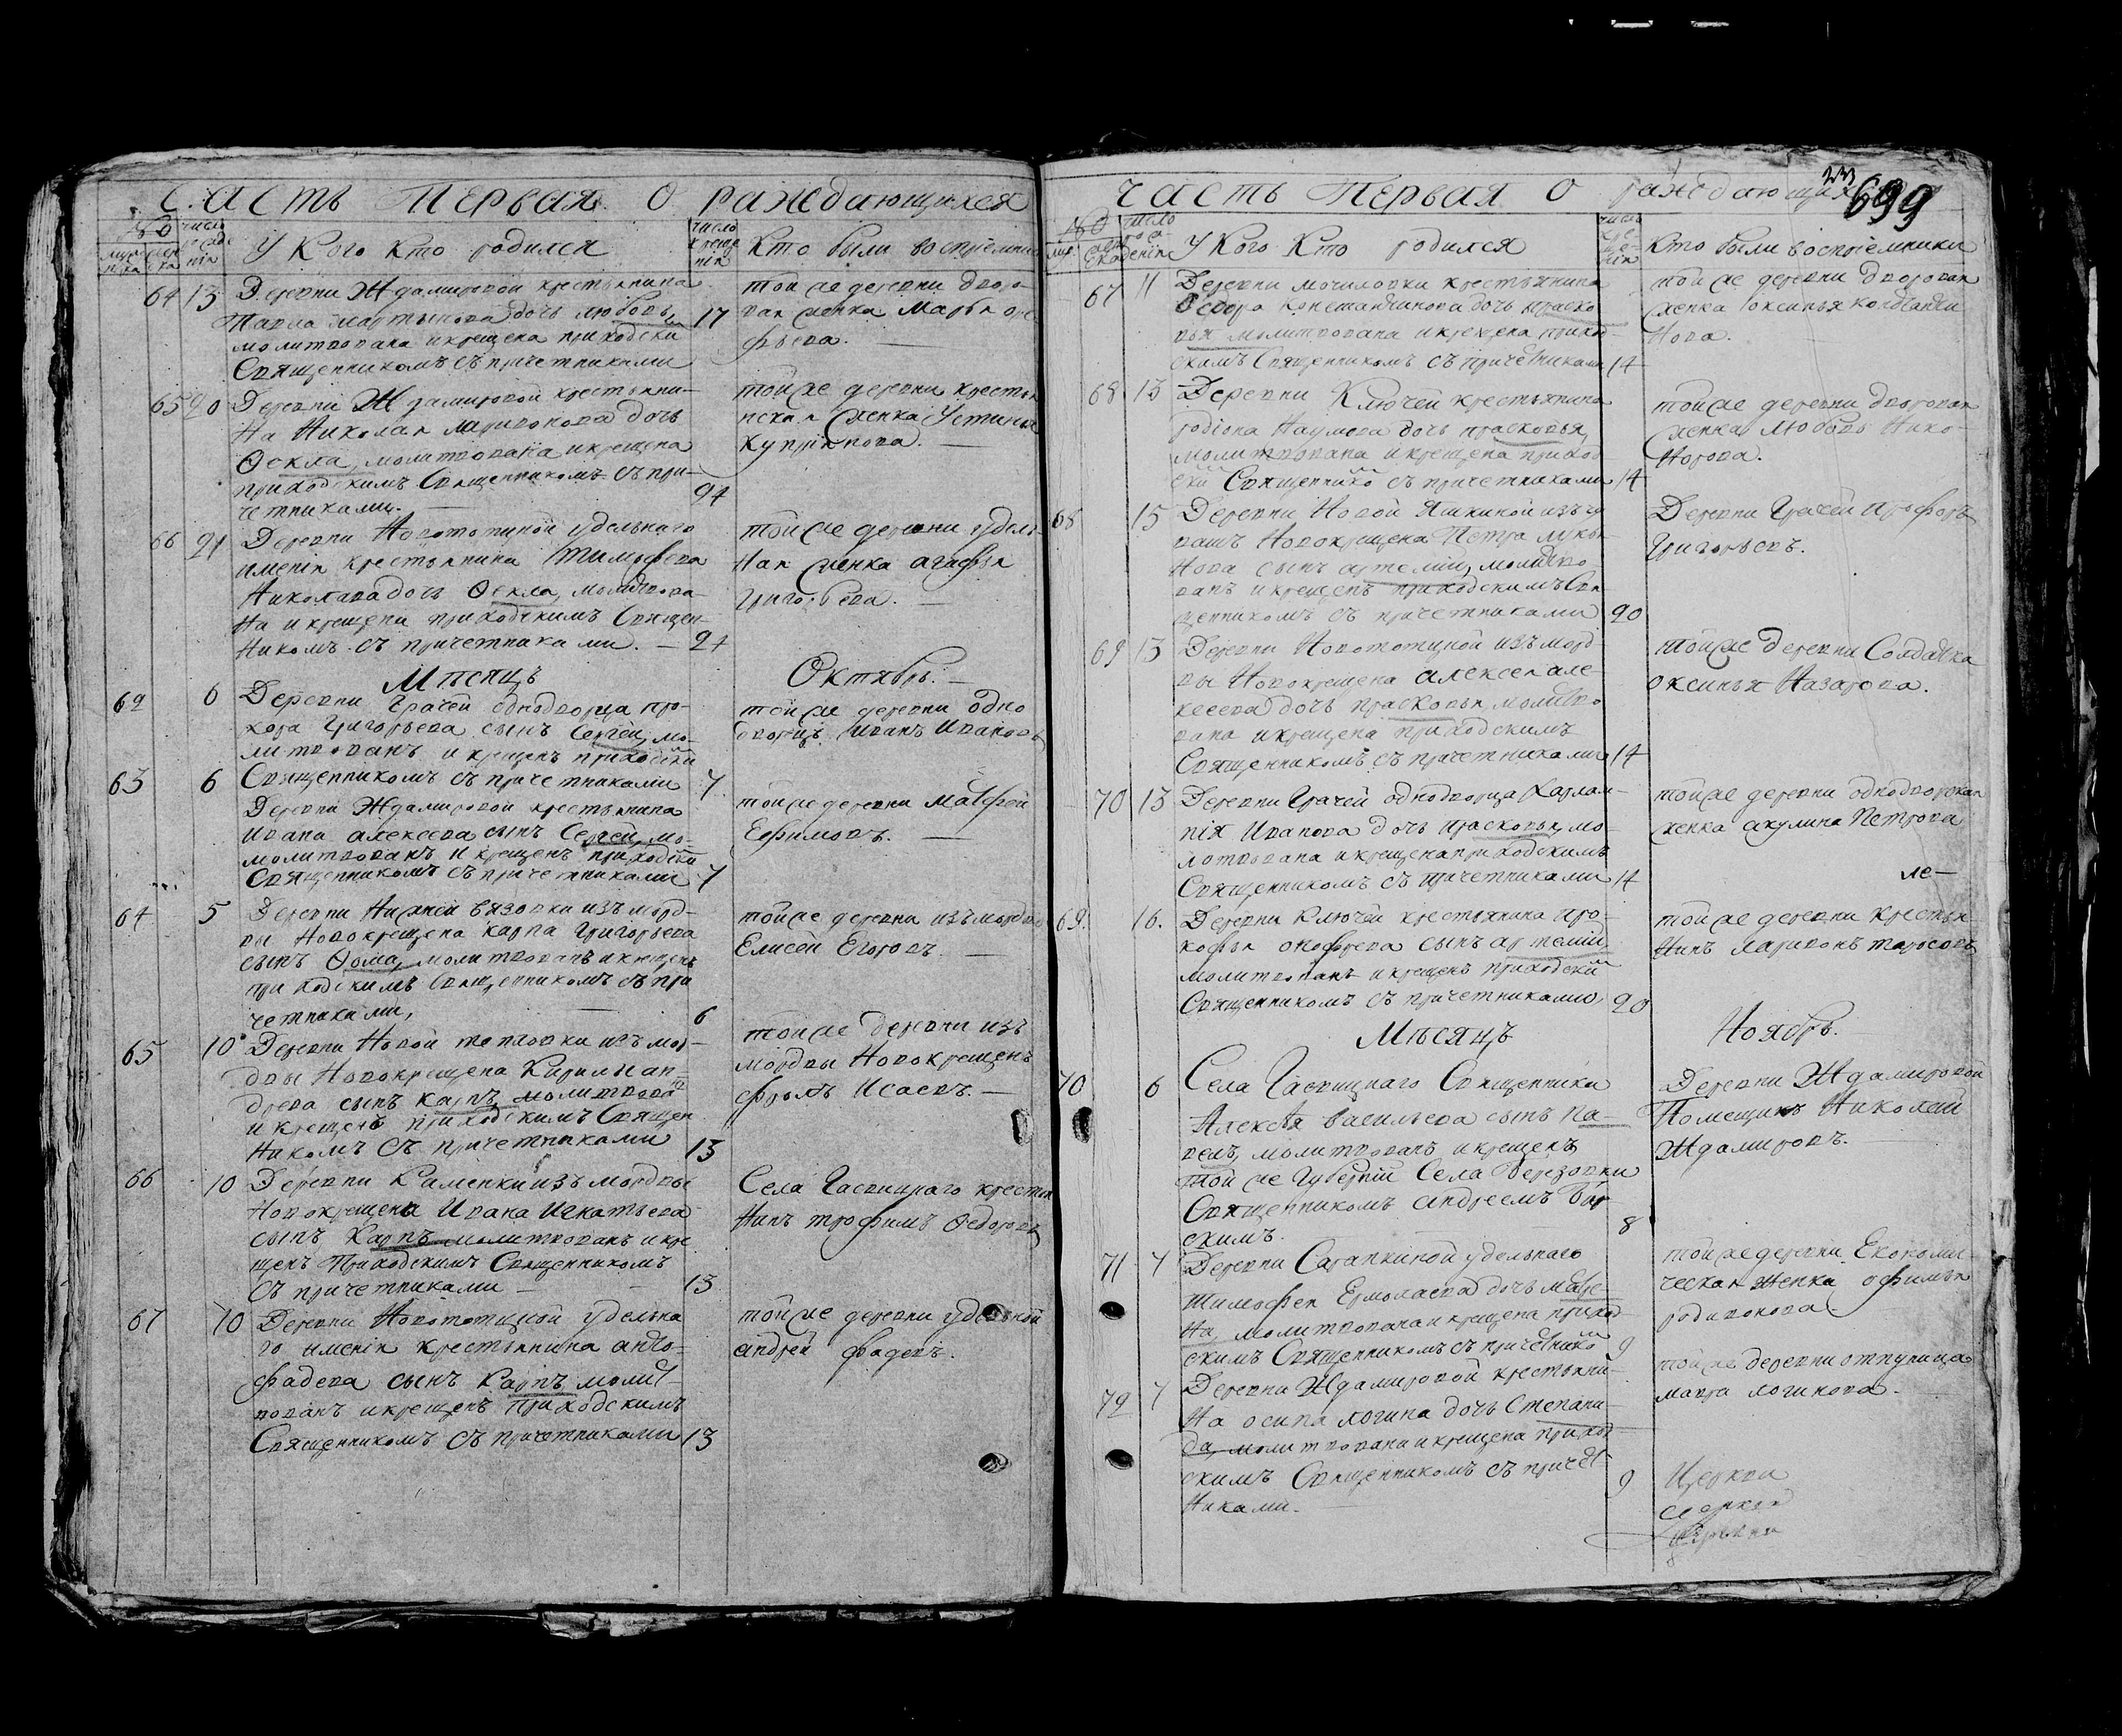 Часть Первая О раждающихся
№
число
мужеска
женска
рожденія
У Кого Кто родился
число крещенія
Кто были воспріемники
64 13 Деревни Ждамировой крестьянина
Павла мартынова дочь любовь, 17
молитвована и крещена приходски
Священникомъ съ причетниками
той же деревни дворо-
вая женка Марья
65 20 Деревни Ждамировой крестьяни-
на Николая ларионова дочь
Ѳекла, молитвована и крещена
приходскимъ Священникомъ съ при-
четниками. 24
той же деревни крестья
нская женка Устинья
Купріянова.
66 21 Деревни Новотопиной удельнаго
именія крестьянина Тимофѣева
Николаева дочь Ѳекла, молитвова-
на и крещена приходскимъ Священ-
никомъ съ причетниками. 24
той же деревни удель-
ная женка агафья
Григорьева.
Мѣсяцъ Октябрь.
62 6 Деревни Грачей однодворца про-
хора Григорьева сынъ Сергей, мо-
литвованъ и крещенъ приходски
Священникомъ съ причетниками 7
той же деревни одно
дворецъ Иванъ Ивановъ
63 6 Деревни Ждамировой крестьянина
Ивана алексеева сынъ Сергей, мо-
молитвованъ и крещенъ приходски
Священникомъ съ причетниками 7
той же деревни Матфей
Ефимовъ.
64 5 Деревни Нижней вязовки изъ морд-
вы Новокрещена карпа Григорьева
сынъ Ѳома, молитвованъ и крещенъ
приходскимъ Священникомъ съ при
четниками, 6
той же деревни изъ мордвы
Елисей Егоровъ.
65 10 Деревни Новой тепловки изъ мор-
двы Новокрещена Кирилы ан-
дреева сынъ карпъ, молитвова
и крещенъ приходскимъ Священ
никомъ съ причетниками 13
той же деревни изъ
мордвы Новокрещенъ
фролъ Исаевъ.
66 10 Деревни Каменки изъ мордвы
Новокрещена Ивана Игнатьева
сынъ Карпъ молитвованъ и кре
щенъ Приходскимъ Священникомъ
съ причетниками 13
Села Гасвицкаго крестья
нинъ трофимъ Ѳедоровъ
67 10 Деревни Новотопиной удельна
го именія крестьянина
фадеева сынъ Карпъ молит-
вованъ и крещенъ Приходскимъ
Священникомъ съ причетниками 13
той же деревни удельной
андрей фадеевъ.
Часть Первая О раждающихся
699
№
число
рожденія
У Кого Кто родился
число крещенія
Кто были воспріемники
67 11 Деревни мочиловки крестьянина
Ѳедора Константинова дочь праско
вья молитвована и крещена приход-
скимъ Священникомъ съ причетниками 14
той же деревни дворовая
женка оксинья константи
нова.
68 13 Деревни Ключей крестьянина
родіона Наумова дочь прасковья,
молитвована и крещена приход-
ски Священнико съ причетниками 14
той же деревни дворовая
женка Любовь Ники-
форова.
68 15 Деревни Новой Яшкиной изъ чу
вашъ Новокрещена Петра лукья
нова сынъ артемій, молитво
ванъ и крещенъ приходскимъ Свя
щенникомъ съ причетниками 20
Деревни Грачей
Григорьевъ.
69 13 Деревни Новотопиной изъ морд-
вы Новокрещена алексея але-
ксеева дочь прасковья, молитво
вана и крещена приходскимъ
Священникомъ съ причетниками 14
той же деревни Солдатка
оксинья Назарова.
70 13 Деревни Грачей однодворца Харлам-
пія Иванова дочь прасковья, мо-
литвована и крещена приходскимъ
Священникомъ съ причетниками 14
той же деревни однодворская
женка акулина Петрова
69. 16. Деревни Ключей крестьянина про-
кофья онофреева сынъ артемій
молитвованъ и крещенъ приходски
Священникомъ съ причетниками, 20
той же деревни крестья-
нинъ ларионъ тарасовъ
Мѣсяцъ Ноябрь.
70 6 Села Гасвицкаго Священника
Алексѣя васильева сынъ па-
велъ, молитвованъ и крещенъ
той же Губерніи Села Березовки
Священникомъ андреемъ
скимъ. 8
Деревни Ждамировой
Помещикъ Николай
Ждамировъ.
71 7 Деревни Сатапкиной удельнаго
Тимофея Ермолаева дочь матре-
на, молитвована и крещена приход-
скимъ Священникомъ съ причетнико 9
той же деревни Економи-
ческая женка офимья
родионова.
72 7 Деревни Ждамировой крестьяни-
на осипа логина дочь Степани-
да, молитвована и крещена приход-
скимъ Священникомъ съ причет-
никами. 9
той же деревни отпущица
мавра логинова.
Церкви